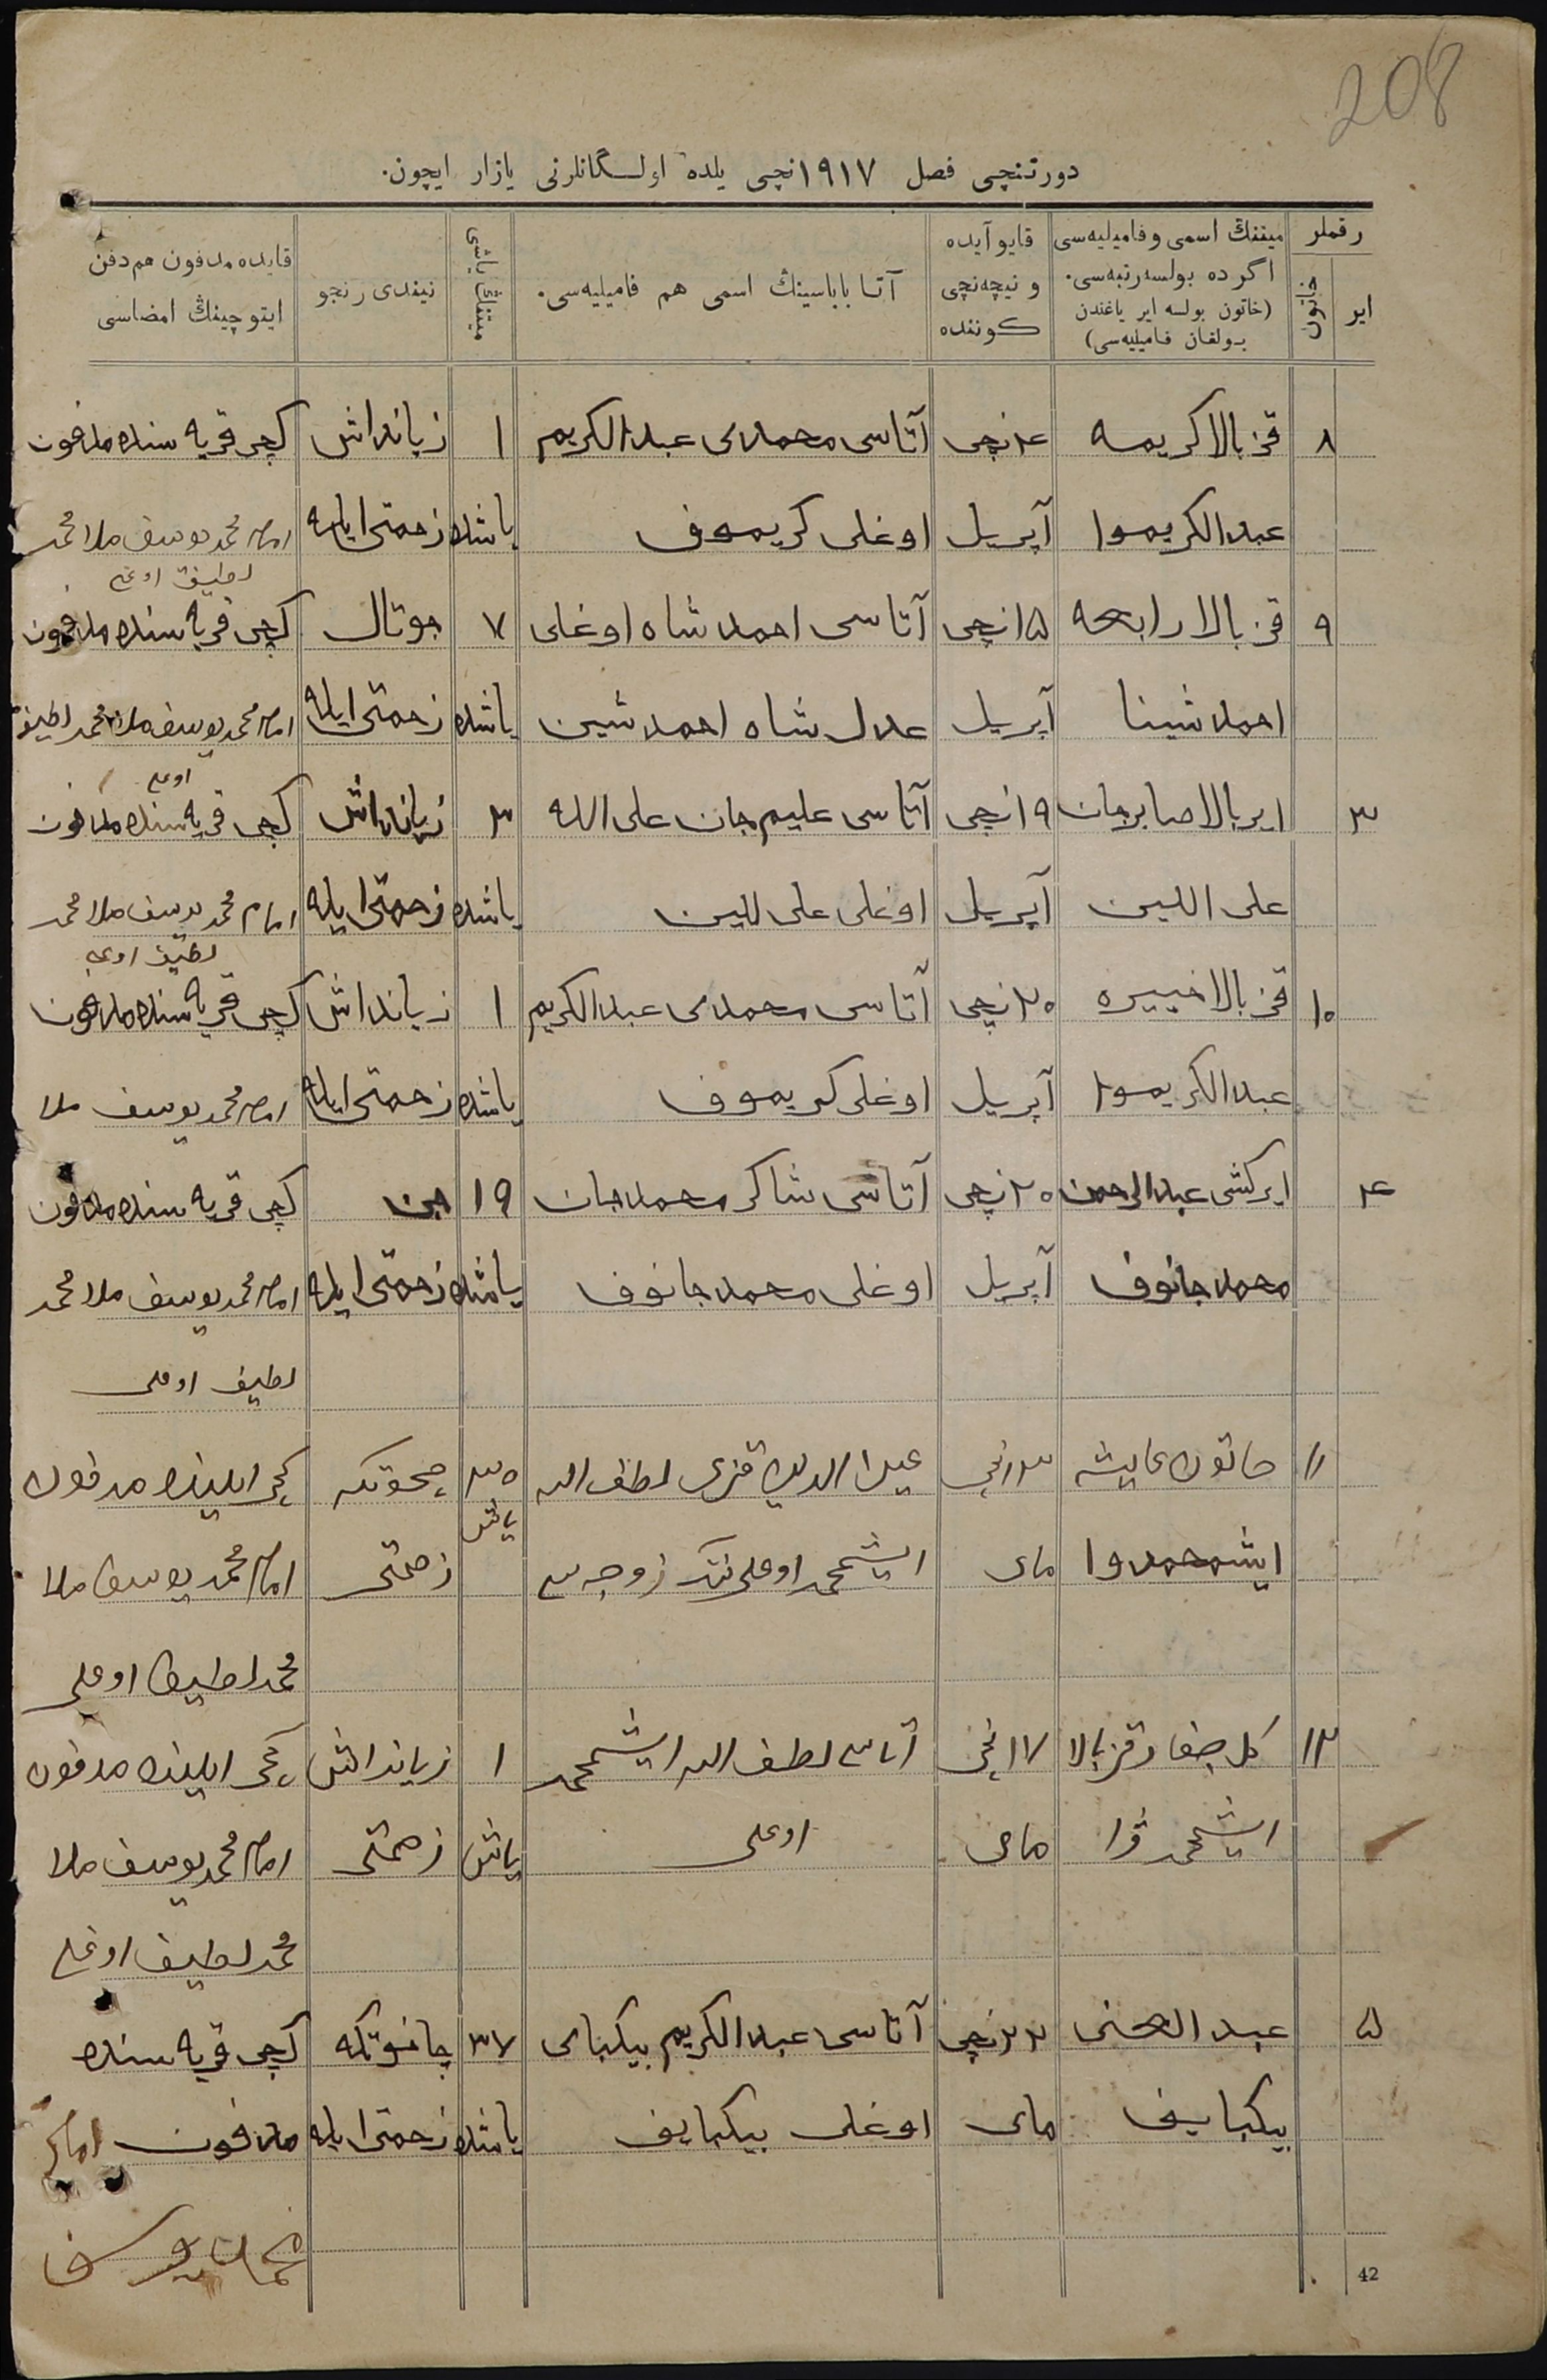 208
دورتنچی فصل ۱۹۱۷نچی یلده اولسگانلرنی یازار ایچون.
رقملر
ایر
خاتون
میتننڭ اسمی وفامیلیه‌سی
اگرده بولسه رتبه‌سی.
(خاتون بولسه ایر یاغندن
بولغان فامیلیه‌سی)
قایو آیده
و نیچه‌نچی
کوننده
آتا باباسینڭ اسمی هم فامیلیه‌سی.
میتننڭ یاشی
نیندی رنجو
قایده مدفون هم دفن
ایتوچینڭ امضاسی
۸ قز بالا کریمه ۴نچی آتاسی محمدی عبدالکریم ۱ زیانداش کچی قریه سنده مدفون
عبدالکریموا آپریل اوغلی کریموف یاشده زحمتی ایله امام محمد یوسف ملا محمد
لطیف اوغلی
۹ قز بالا رابعه ۱۵نچی آتاسی احمدشاه اوغلی ۷ جوتال کچی قریه سنده مدفون
احمدشینا آپریل عدل شاه احمدشین یاشده زحمتی ایله امام محمد یوسف ملا محمد لطیف
اوغلی
۳ ایر بالا صابرجان ۱۹نچی آتاسی علیم جان علی الله ۳ زیانداش کچی قریه سنده مدفون
علی اللین آپریل اوغلی علی للین یاشده زحمتی ایله امام محمد یوسف ملا محمد
لطیف اوغلی
۱۰ قز بالا خبیره ۲۰نچی آتاسی محمدی عبدالکریم ۱ زیانداش کچی قریه سنده مدفون
عبدالکریموا آپریل اوغلی کریموف یاشده زحمتی ایله امام محمد یوسف ملا
۴ ایر کشی عبدالرحمن ۲۰نچی آتاسی شاکر محمدجان ۱۹ جن کچی قریه سنده مدفون
محمدجانوف آپریل اوغلی محمدجانوف یاشده زحمتی ایله امام محمد یوسف ملا محمد
لطیف اوغلی
۱۱ خاتون عایشه ۳نچی قزی لطف الله ۳۵ چحوتکه کچی ایلینده مدفون
یاش
ایشمحمدوا مای ایشمحمد اوغلی ننک زوجه سی زحمتی امام محمد یوسف ملا
محمد لطیف اوغلی
۱۲ قز بالا ۱۷نچی آتاسی لطف الله ایشمحمد ۱ زیانداش کچی ایلینده مدفون
ایشمحمدوا مای اوغلی یاش زحمتی امام محمد یوسف ملا
محمد لطیف اوغلی
۵ عبدالغنی ۲۲نچی آتاسی عبدالکریم بیکبای ۳۷ چاخوتکه کچی قریه سنده
بیکبایف مای اوغلی بیکبایف یاشده زحمتی ایله مدفون امام
محمد یوسف
42